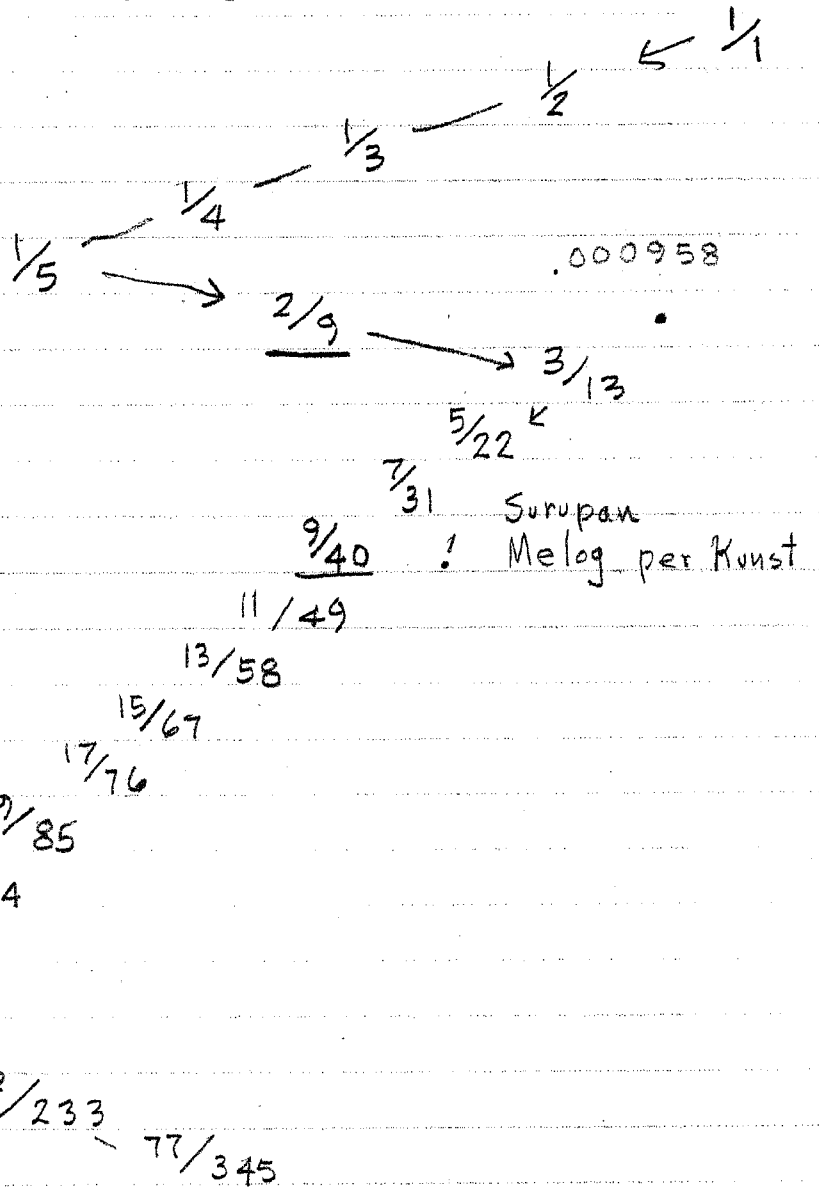 1/1
1/2
1/3
1/4
1/5
.000958
2/9
3/13
5/22
7/31
Surupan
9/40 ! Melog per Kunst
11/49
13/58
15/67
17/76
9/85
4
/233
77/345